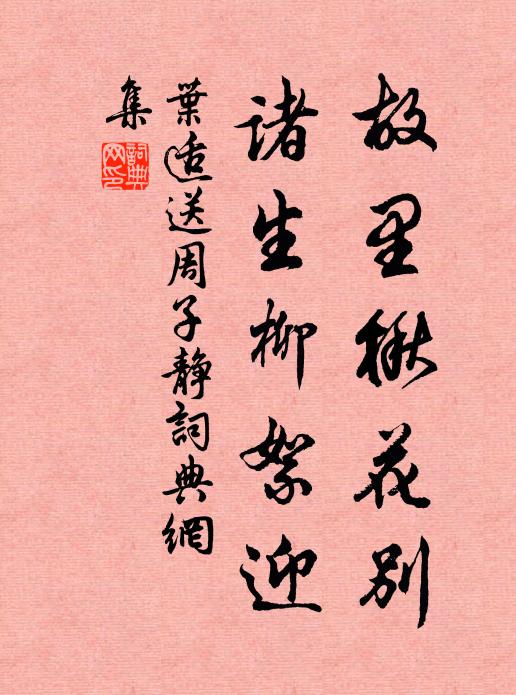 故里楸花別
諸生柳絮迎
葉适送周子静詞典網
集
詞典網印